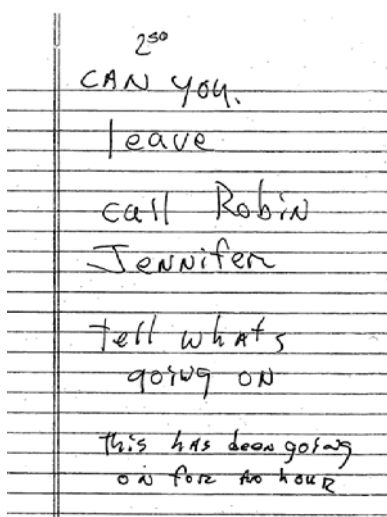 2⁵⁰
CAN YOU.
leave
call Robin
Jennifer
tell whats
going on
this has been going
on for an hour